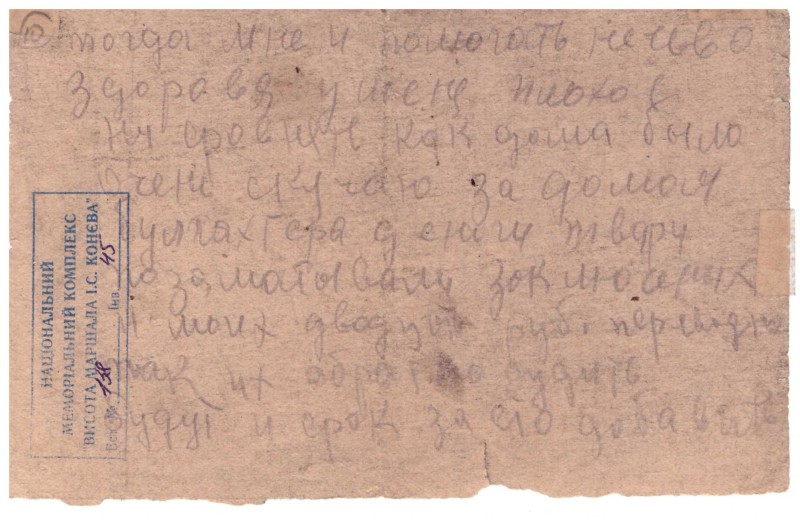 10
тогда мне и помогать нечево
Здоравя у меня плохое
ни сровнить как дома было
Очень скучаю за домом
булгахтера деньги
позаматывали заключеных
и моих двадцать руб.
так их обратно
будут и срок за его добавять
НАЦІОНАЛЬНИЙ
МЕМОРІАЛЬНИЙ КОМПЛЕКС
"ВИСОТА МАРШАЛА І.С. КОНЄВА"
138 Інв 45